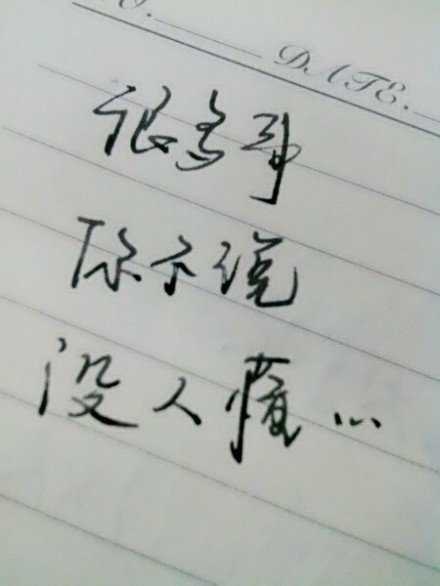 O.
DATE.
很多事
你不说
没人懂...